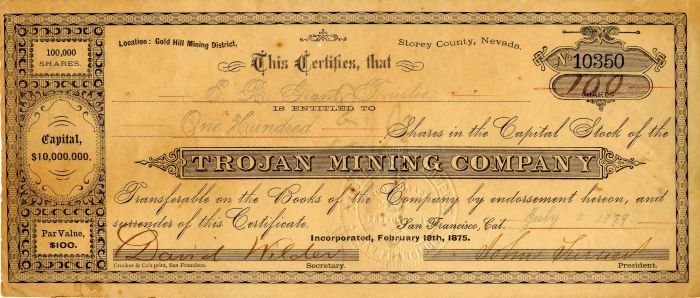 100,000
SHARES.
Location: Gold Hill Mining District,
Storey County, Nevada.
No 10350
This Certifies, that
100
SHARES
E. R. Grant Trustee
IS ENTITLED TO
One Hundred Shares in the Capital Stock of the
Capital,
$10,000,000.
TROJAN MINING COMPANY
Transferable on the Books of the Company by endorsement hereon, and
surrender of this Certificate.
San Francisco, Cal. July 1879
Par Value,
$100.
Incorporated, February 19th, 1875.
David Wilder
John
Crocker & Co's print, San Francisco.
Secretary.
President.